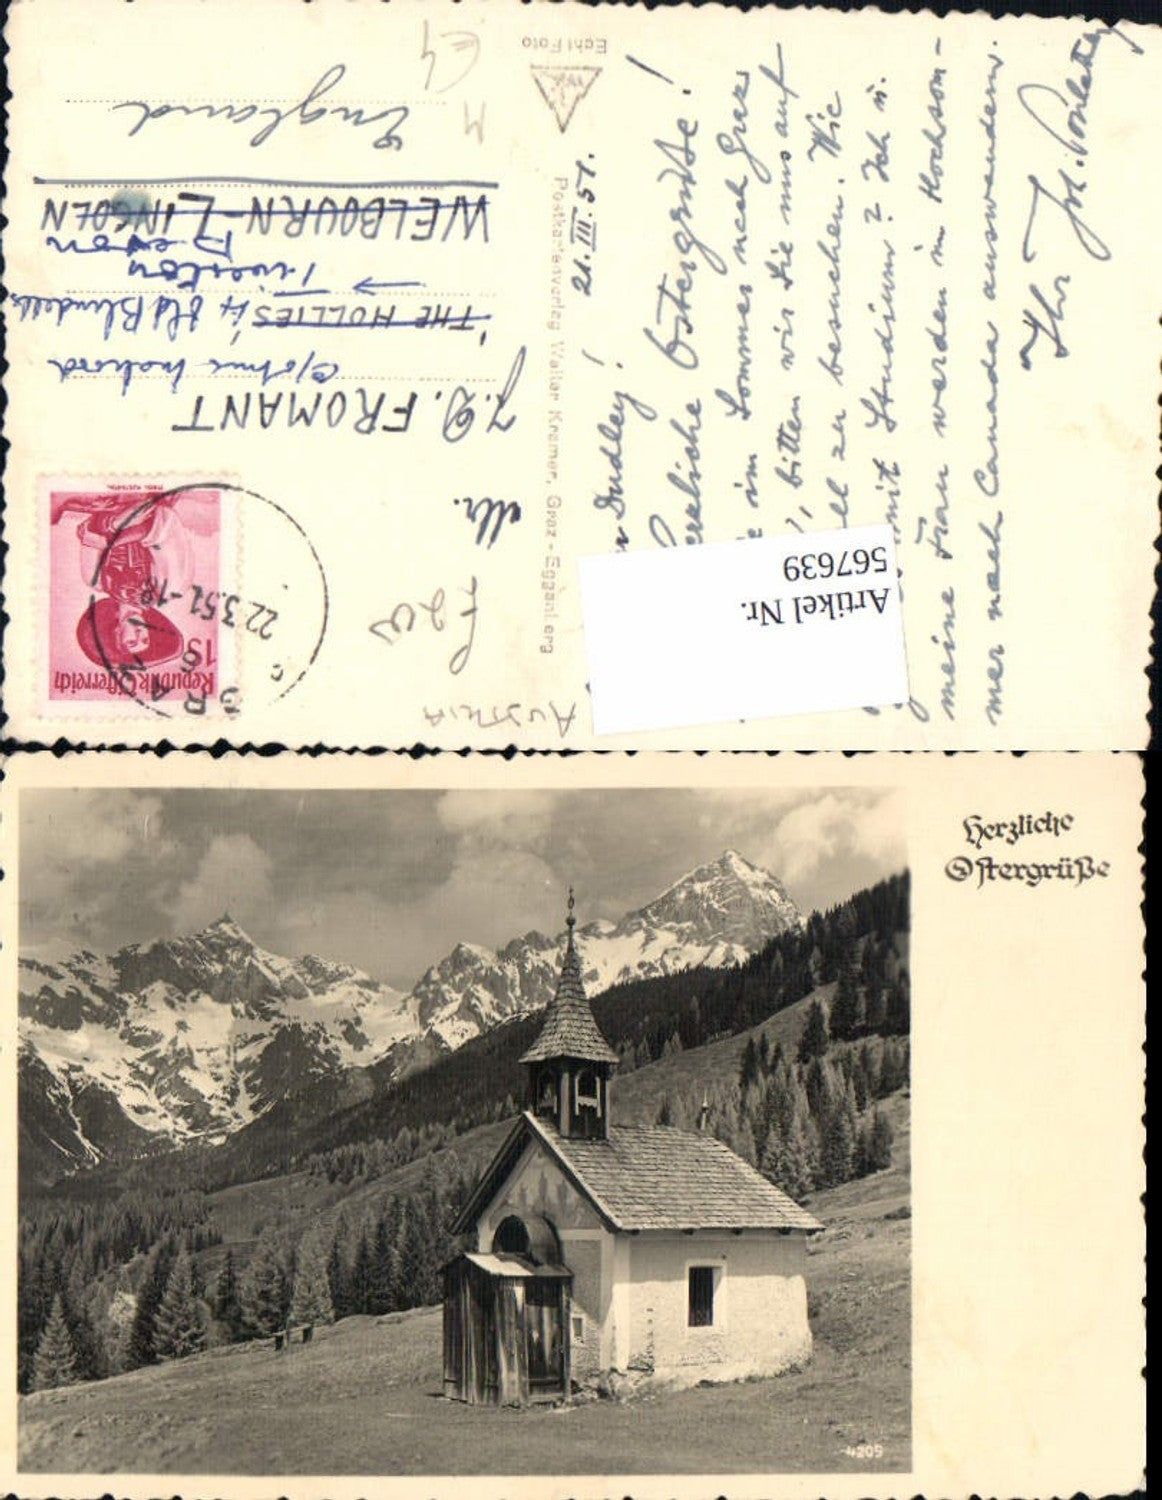 Echt Foto
Postkartenverlag Walter Kramer, Graz - Eggenberg
21. III. 51.
Dudley!
Herzliche Ostergrüsse!
im Sommer nach Graz
, bitten wir Sie uns auf
zu besuchen. Wie
mit Studium? Ich u.
meine Frau werden im Hochsom-
mer nach Canada auswandern.
Ihr
Artikel Nr.
567639
Republik Österreich
1S
GRAZ
22.3.51-18
Mr.
J.D. FROMANT
c/o
"THE HOLLIES" Old Blundells
→ Tiverton
WELBOURN-LINCOLN
Devon
England
AUSTRIA
M
Herzliche
Ostergrüße
4209